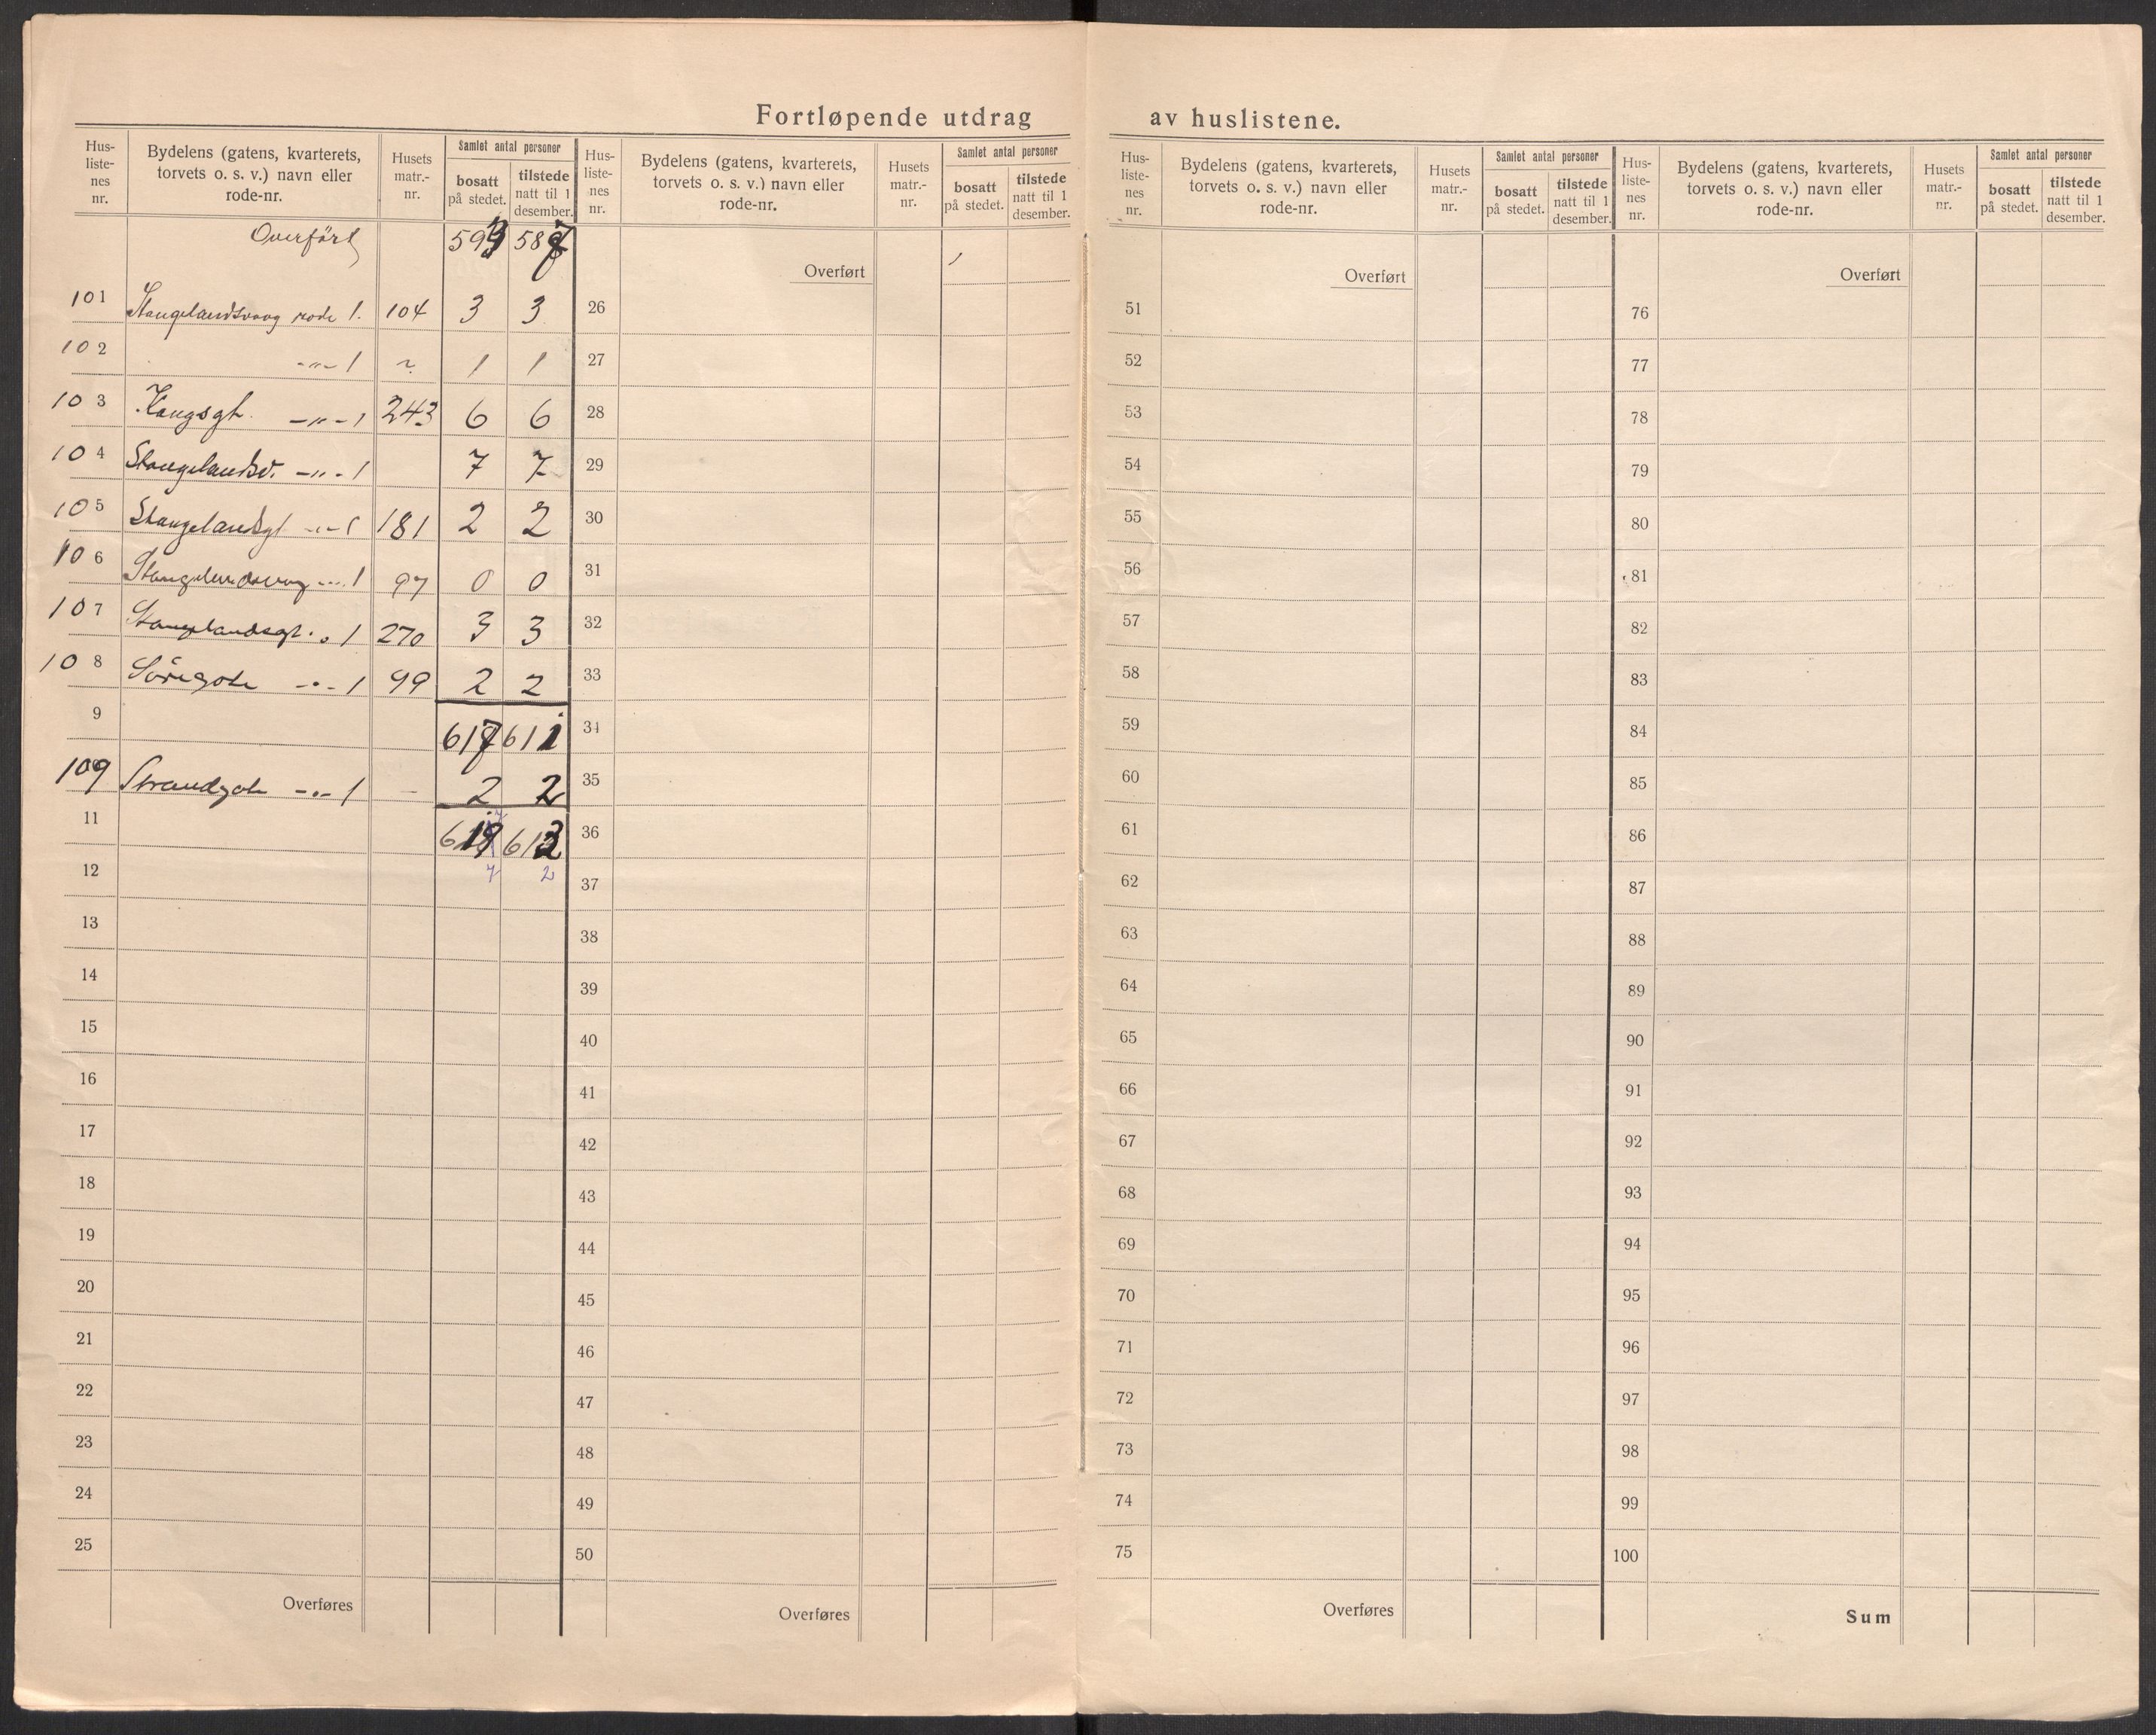 Fortløpende utdrag av huslistene.
Hus-
liste-
nes
nr.
Bydelens (gatens, kvarterets,
torvets o. s. v.) navn eller
rode-nr.
Husets
matr.-
nr.
Samlet antal personer
bosatt
på stedet.
tilstede
natt til 1
desember.
Overført
101 Stangelandsvaag rode 1. 104 3 3
102 -"- 1 1 1
103 Kongsgt. -"- 1 243 6 6
104 Stangelandsv. -"- 1 7 7
105 Stangelandsgt -"- 1 181 2 2
106 Stangelandsvaag -"- 1 97 0 0
107 Stangelandsgt. " 1 270 3 3
108 Söregate -"- 1 99 2 2
9 617 611
109 Strandgate -"- 1 - 2 2
11
12 7 2
13
14
15
16
17
18
19
20
21
22
23
24
25
Overføres
Hus-
liste-
nes
nr.
Bydelens (gatens, kvarterets,
torvets o. s. v.) navn eller
rode-nr.
Husets
matr.-
nr.
Samlet antal personer
bosatt
på stedet.
tilstede
natt til 1
desember.
Overført
26
27
28
29
30
31
32
33
34
35
36
37
38
39
40
41
42
43
44
45
46
47
48
49
50
Overføres
Hus-
liste-
nes
nr.
Bydelens (gatens, kvarterets,
torvets o. s. v.) navn eller
rode-nr.
Husets
matr.-
nr.
Samlet antal personer
bosatt
på stedet.
tilstede
natt til 1
desember.
Overført
51
52
53
54
55
56
57
58
59
60
61
62
63
64
65
66
67
68
69
70
71
72
73
74
75
Overføres
Hus-
liste-
nes
nr.
Bydelens (gatens, kvarterets,
torvets o. s. v.) navn eller
rode-nr.
Husets
matr.-
nr.
Samlet antal personer
bosatt
på stedet.
tilstede
natt til 1
desember.
Overført
76
77
78
79
80
81
82
83
84
85
86
87
88
89
90
91
92
93
94
95
96
97
98
99
100
Sum